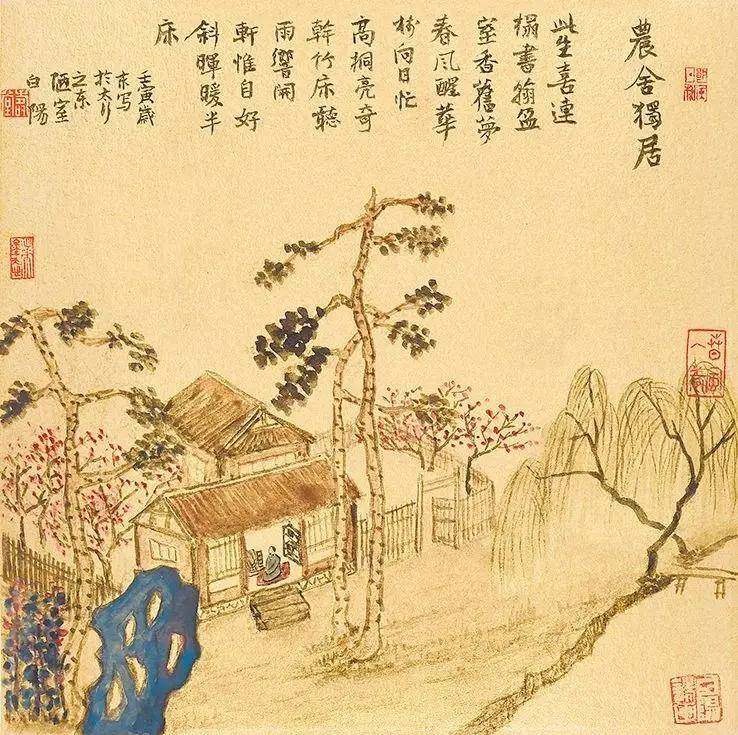 農舍獨居
此生喜連
榻書翰盈
室香舊夢
春风醒華
树向日忙
高桐亮奇
幹竹床聽
雨響開
軒惟自好
斜暉暖半
床
壬寅歲
写
於太行
之东
陋室
白陽